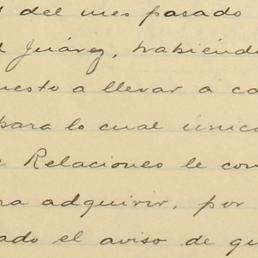 del mes pasado
Juárez, habiénd
uesto a llevar a ca
para lo cual únic
Relaciones le con
ra adquirir, por
ado el aviso de qu